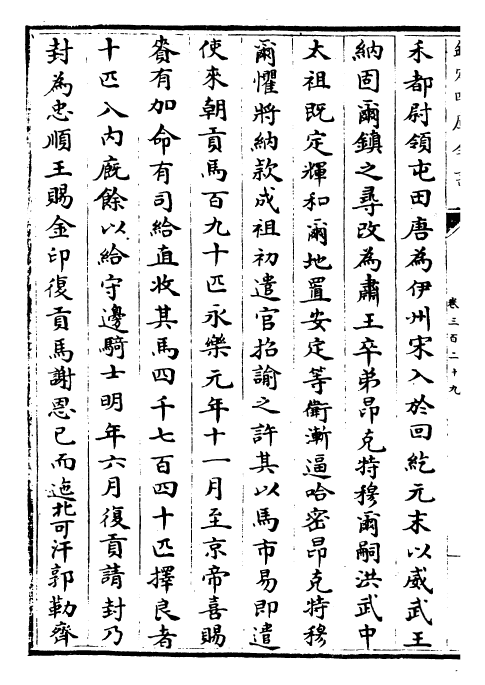 欽定四庫全書
卷三百二十九
禾都尉領屯田唐為伊州宋入於回紇元末以威武王
納固爾鎮之尋改為肅王卒弟昂克特穆爾嗣洪武中
太祖既定輝和爾地置安定等衛漸逼哈密昂克特穆
爾懼將納款成祖初遣官招諭之許其以馬市易即遣
使來朝貢馬百九十匹永樂元年十一月至京帝喜賜
賚有加命有司給直收其馬四千七百四十匹擇良者
十匹入内廐餘以給守邊騎士明年六月復貢請封乃
封為忠順王賜金印復貢馬謝恩已而迤北可汗郭勒齊